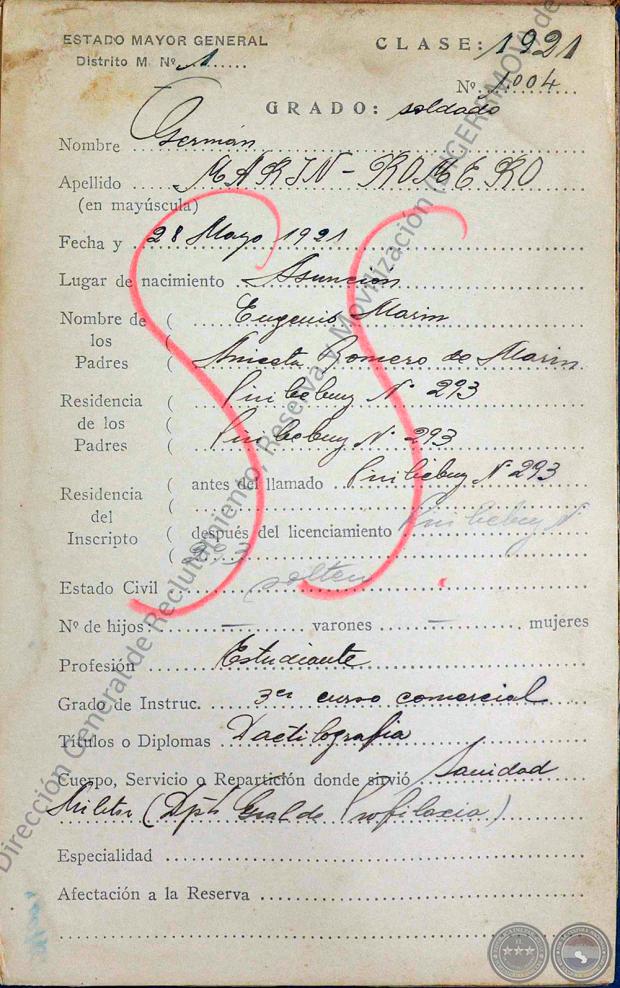 ESTADO MAYOR GENERAL
Distrito M. Nº 1
CLASE: 1921
Nº 1.004
GRADO: soldado
Nombre Germán
Apellido MARIN - ROMERO
(en mayúscula)
Fecha y 28 Mayo 1921
Lugar de nacimiento Asunción
Nombre de los Padres ( Eugenio Marin
( Aniceta Romero de Marin
Residencia de los Padres ( Piribebuy Nº 293
( Piribebuy Nº 293
Residencia del Inscripto ( antes del llamado Piribebuy Nº 293
( después del licenciamiento Piribebuy Nº
( 293
Estado Civil soltero
Nº de hijos: — varones — mujeres
Profesión Estudiante
Grado de Instruc. 3er curso comercial
Títulos o Diplomas Dactilografia
Cuerpo, Servicio o Repartición donde sirvió Sanidad
Militar (Dpto Gral de Profilaxia)
Especialidad
Afectación a la Reserva
SS
Dirección General de Reclutamiento, Reserva y Movilización (DIGERRMOV) de